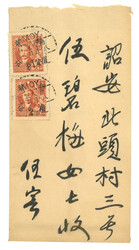 詔安北頭村三号
伍碧梅女士收
伍寄